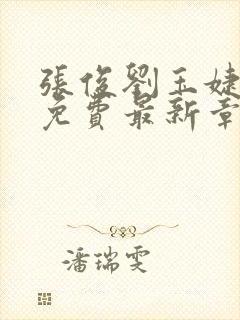 張俊劉玉婕
免費最新章
潘瑞雯